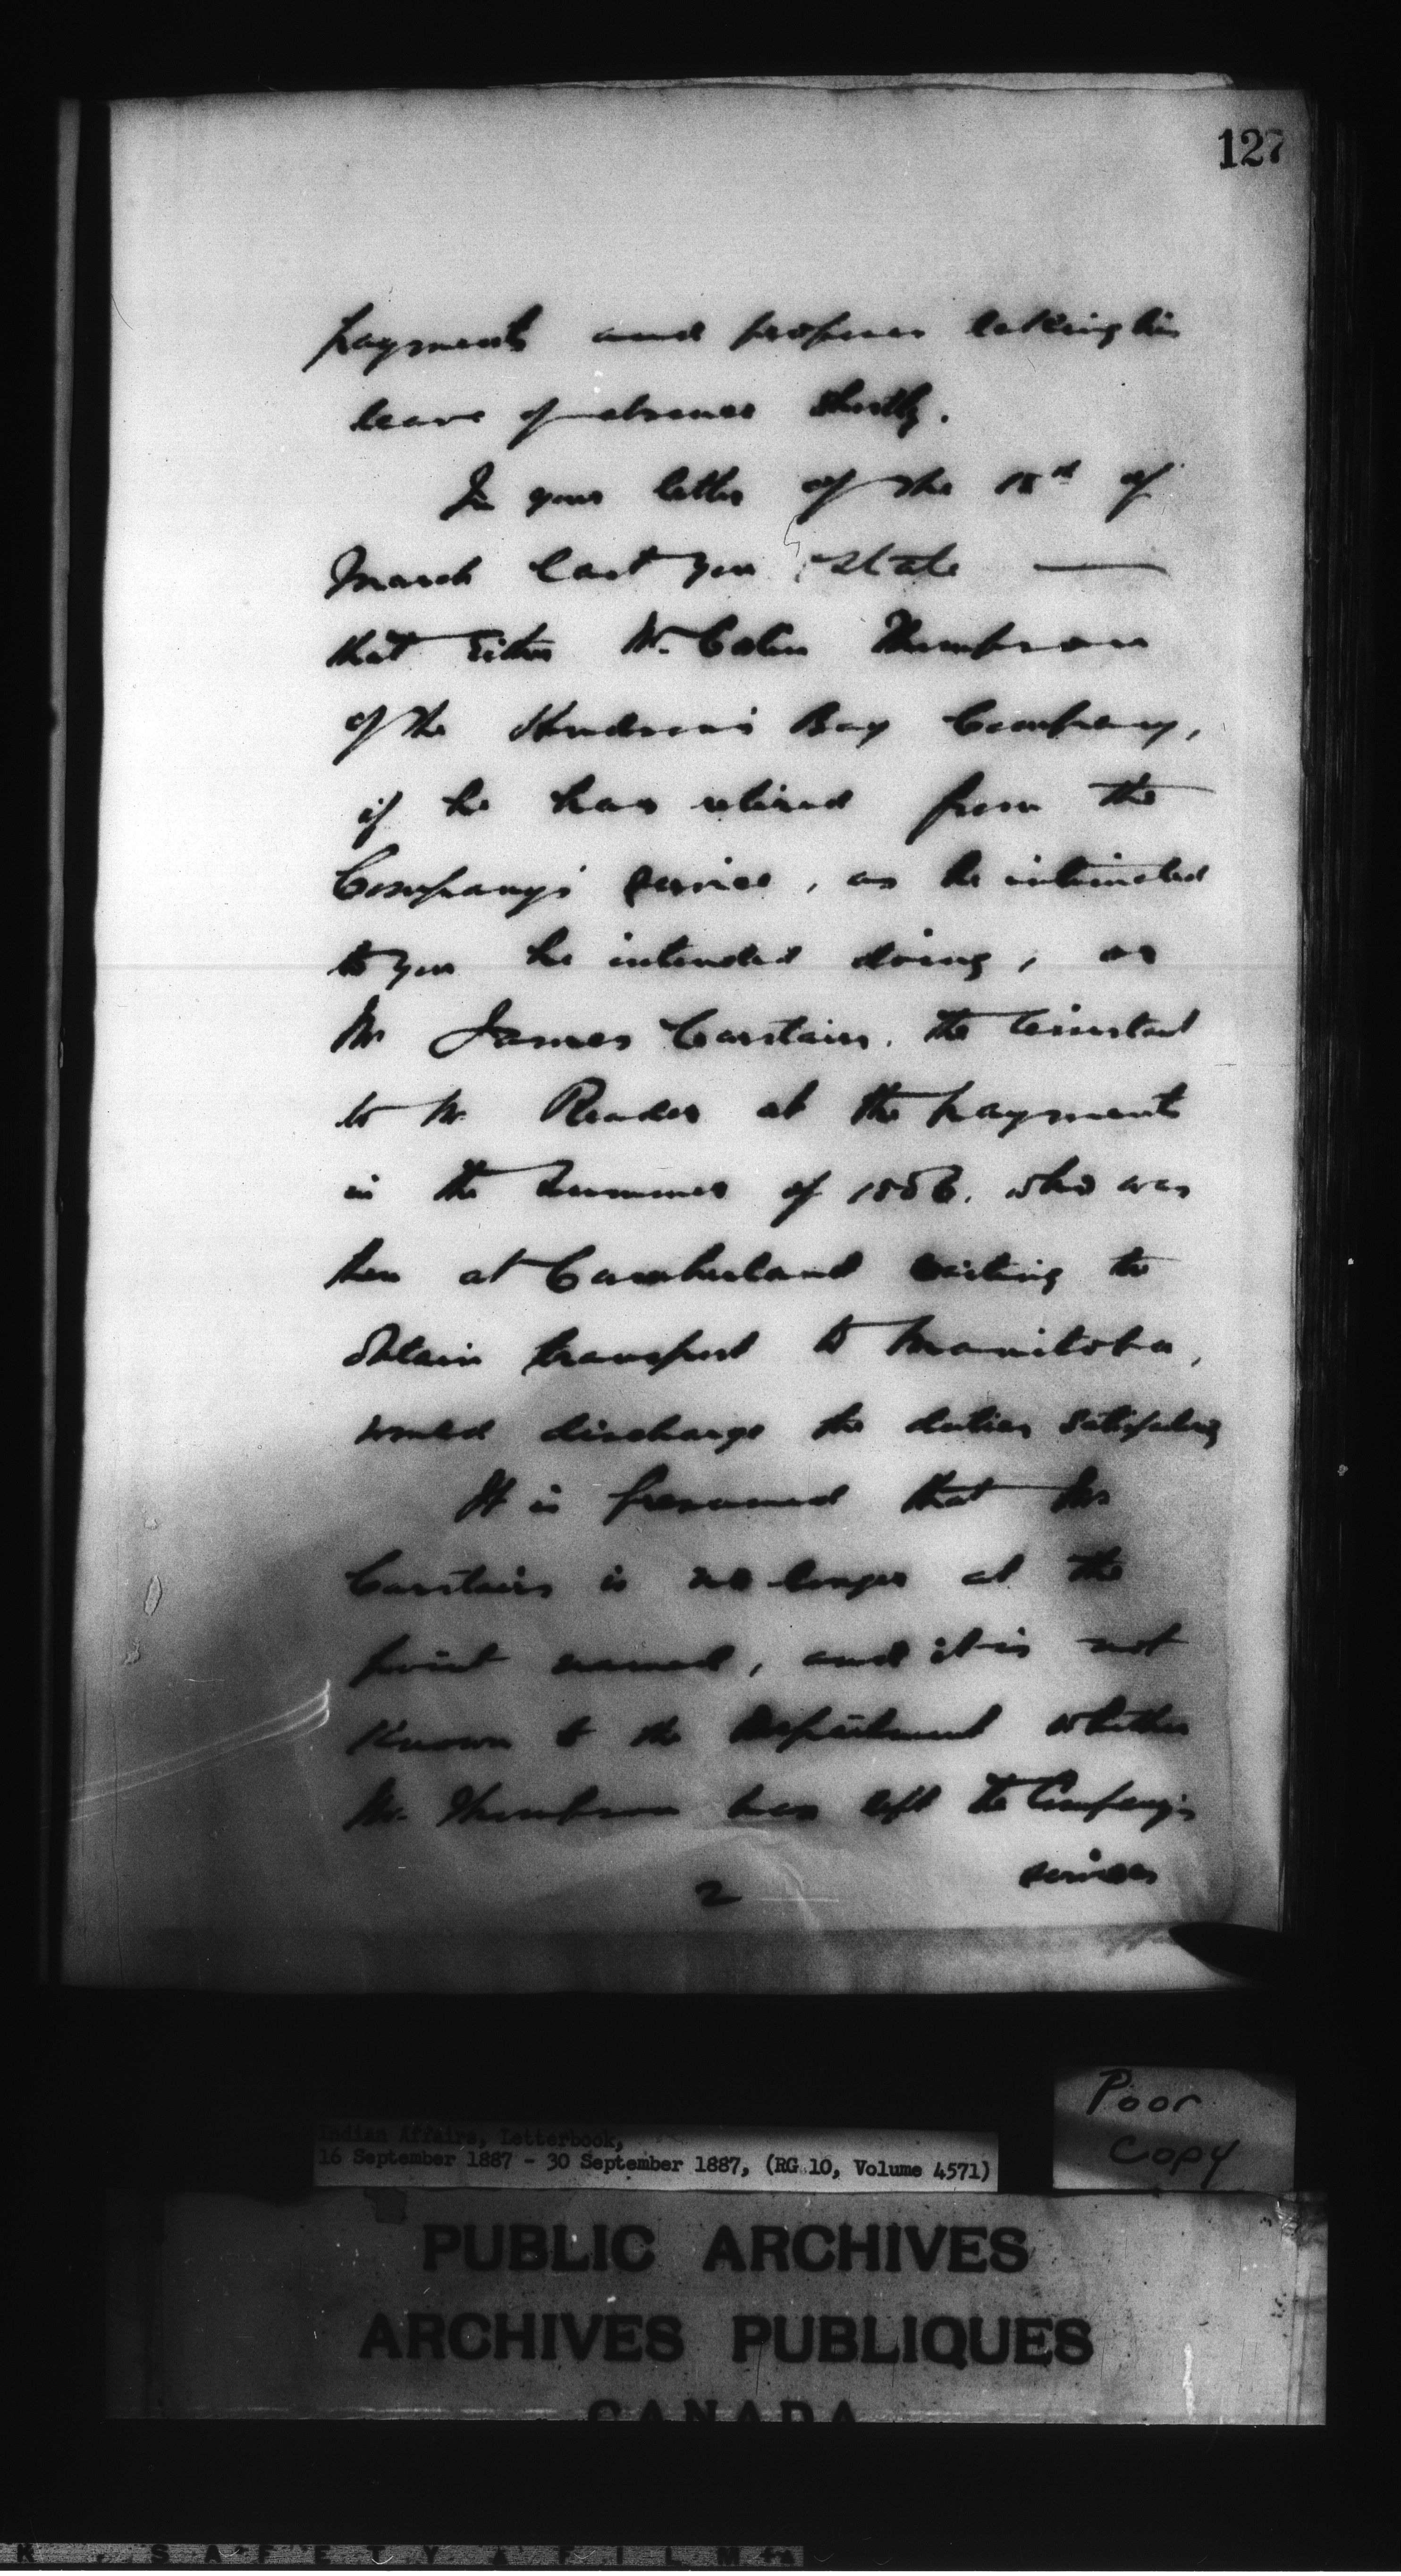 127
payments and proposes taking his
leave of absence shortly.
In your letter of the 18th of
March last you state —
that either Mr. Colin Thompson
of the Hudson's Bay Company,
if he has retired from the
Company's service, as he intimated
to you he intended doing, or
Mr James Carstairs, the Assistant
to Mr. Reader at the payments
in the Summer of 1886, who was
then at Cumberland waiting to
obtain transport to Manitoba,
would discharge the duties
It is presumed that Mr
Carstairs is no longer at the
point named, and it is not
known to the Department whether
Mr. Thompson has left the Company's
2
Poor
Copy
Indian Affairs, Letterbook,
16 September 1887 - 30 September 1887, (RG 10, Volume 4571)
PUBLIC ARCHIVES
ARCHIVES PUBLIQUES
CANADA
SAFETY FILM